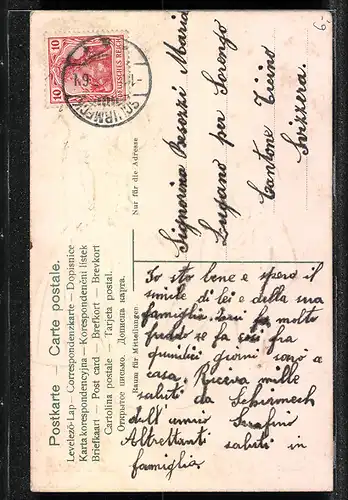 Postkarte — Carte postale.
Levelező-Lap — Correspondenzkarte — Dopisnice
Karta korespondencyjna — Korespondenční lístek
Briefkaart — Post card — Brefkort — Brevkort
Cartolina postale — Tarjeta postal.
Открытое письмо. Дописна карта.
Raum für Mitteilungen
Nur für die Adresse
10 10
DEUTSCHES REICH
SCHIRMECK
6.
Signorina Besozzi Maria
Lugano per Sorengo
Cantone Ticino
Svizzera.
Io sto bene e spero il
simile di lei e della sua
famiglia. ha molto
se fa fra
quindici giorni sarò a
casa. Riceva mille
saluti da Schirmech
dell' amico Serafino
Altrettanti saluti in
famiglia